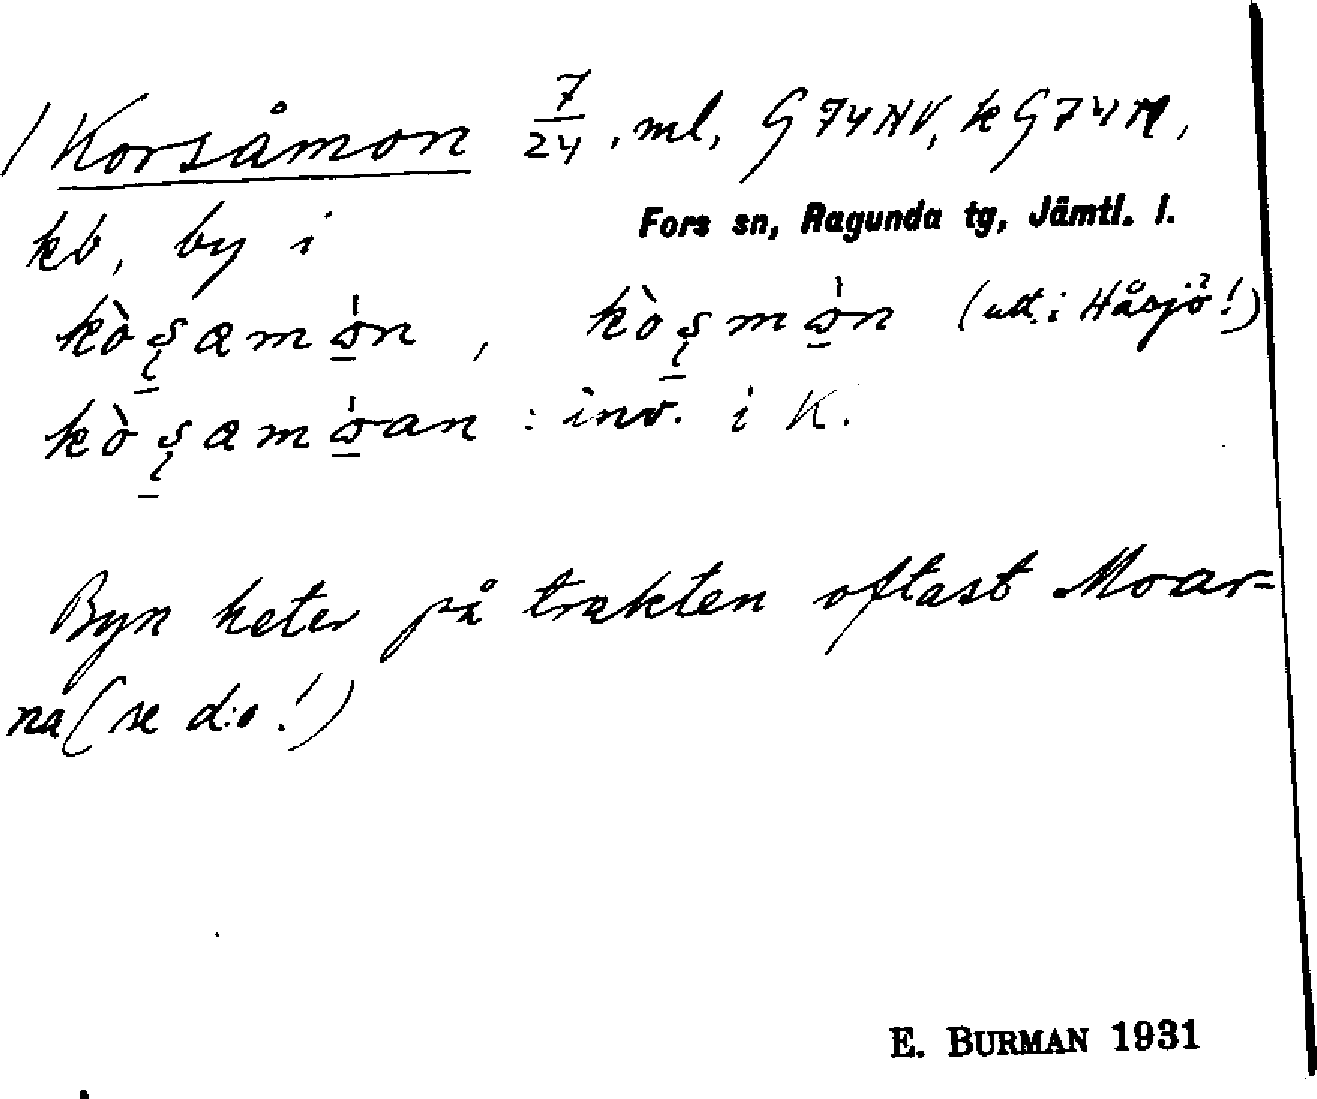 / Korsåmon 7/24, ml, G 74 NV, k G 74 N,
kb, by i Fors sn, Ragunda tg, Jämtl. l.
(utt. i Håsjö!)
: inv. i K.
Byn heter på trakten oftast Moar=
na (se d:o!)
E. BURMAN 1931